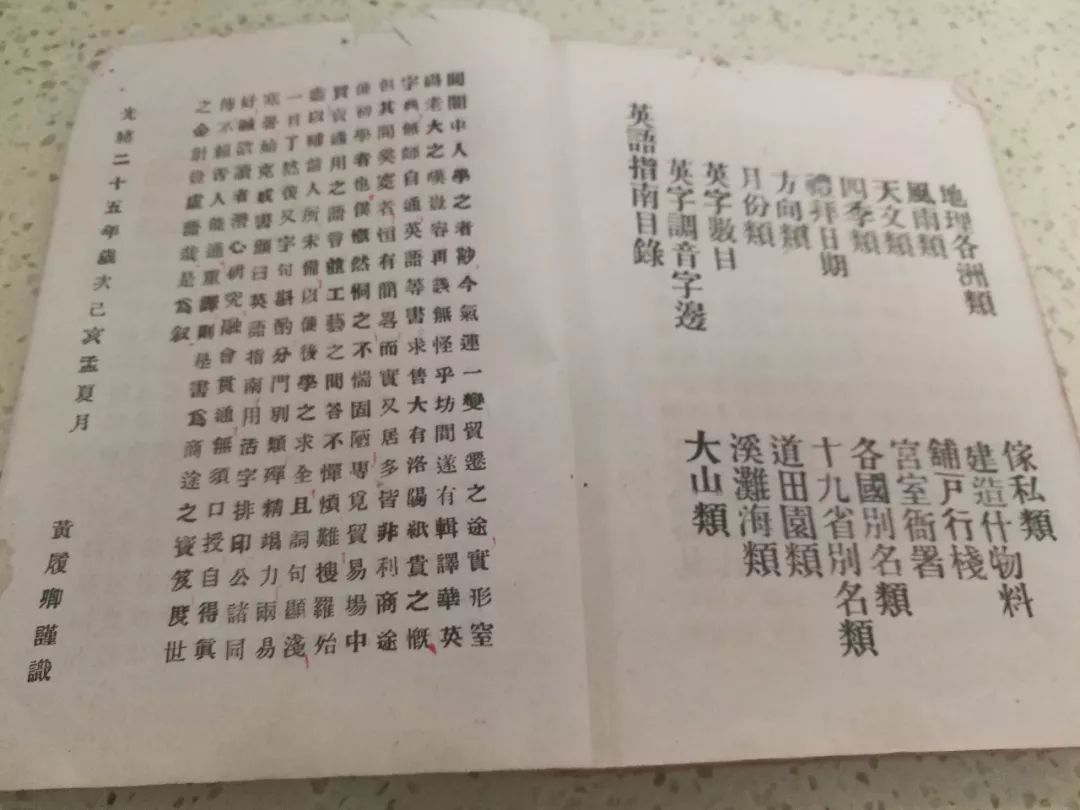 閭中人學之者尠今氣運一變貿遷之途實形窒
礙老大之嘆豈容再誤無怪乎坊間遂有輯譯華英
字典無師自通英語等書求售大有洛陽紙貴之慨
但其間奚者恒有簡畧而實又居多皆非利商途
便初學者也僕慨然憫之不惴固陋專覓貿易場中
買賣通用之語曾體工藝之間答不憚煩難搜羅殆
盡以補前人所未備以便後學之求全且詞句顯淺
一目了然後又字句斟酌分門別類殫精竭力兩易
寒暑始克成書顏曰英語指南用活字排印公諸同
好誠欲讀者潛心硏究融會貫通無須口授自得眞
傳不賴舌人能通重譯則是書爲商途之寶笈度世
之金針豈虛語哉是爲叙
光緒二十五年歲次己亥孟夏月
黃履卿謹識
英語指南目錄
英字調音字邊
英字數目
月份類
方向類
禮拜日期
四季類
天文類
風雨類
地理各洲類
大山類
溪灘海類
道田園類
十九省別名類
各國別名類
宮室衙署
舖戶行棧
建造什物料
傢私類